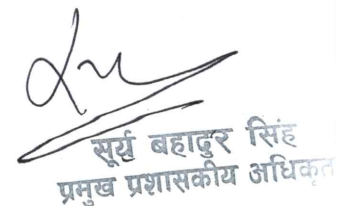 सूर्य बहादुर सिंह
प्रमुख प्रशासकीय अधिकृत